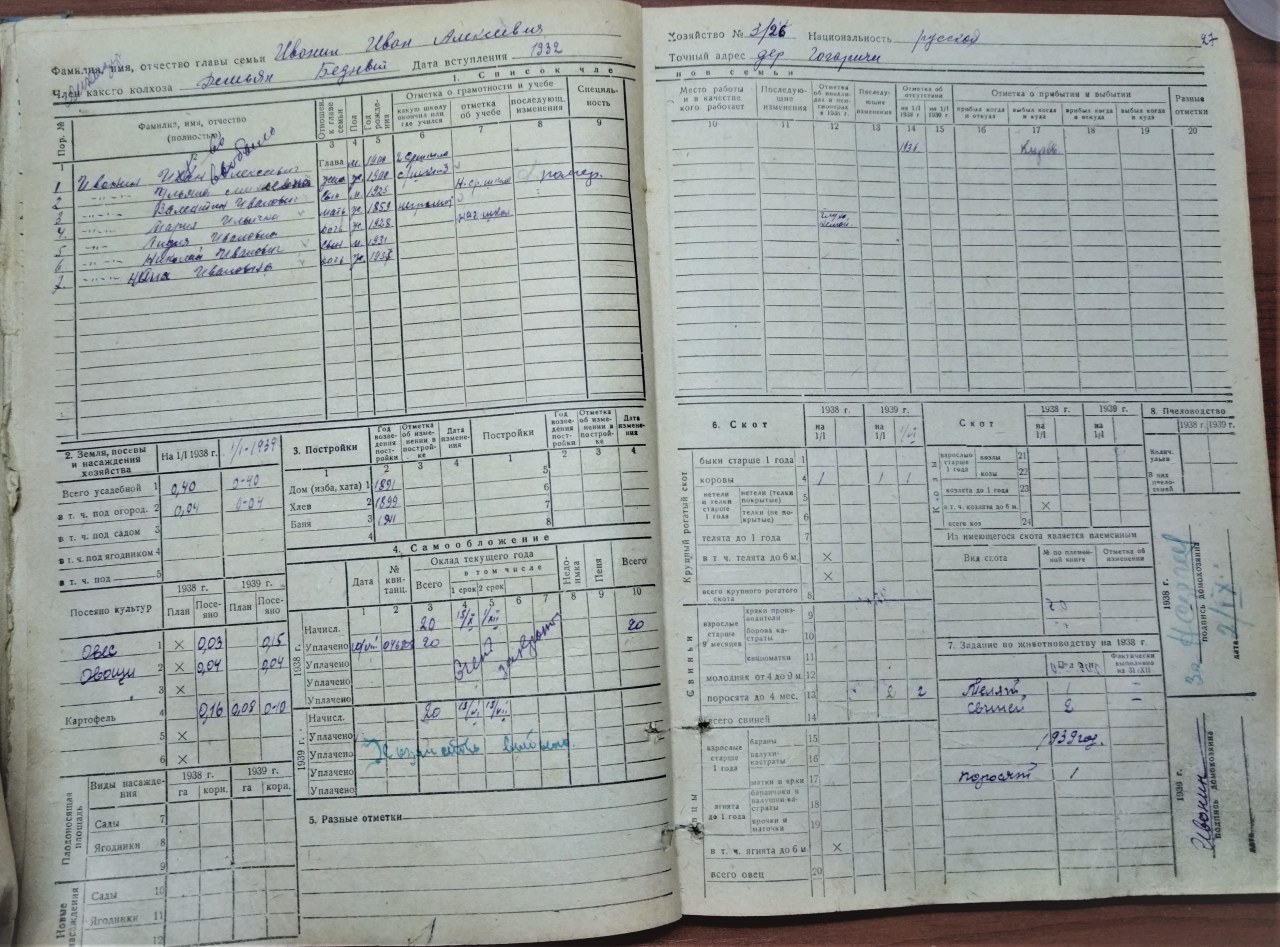 Фамилия, имя, отчество главы семьи Ивонин Иван Алексеевич
Член какого колхоза Демьян Бедный Дата вступления 1932
1. Список чле
Пор. №
Фамилия, имя, отчество (полностью)
Отношен. к главе семьи
Пол
Год рождения
Отметка о грамотности и учебе
какую школу окончил или где учился
отметка об учебе
последующ. изменения
Специальность
3 4 5 6 7 8 9
1 Ивонин Иван Алексеевич Глава м. 1900
2 жена ж. 1900
3 Валентин Иванович сын м. 1925 Н-ср. школ
4 Мария Ильинична мать ж. 1859 неграмот
5 Лидия Ивановна дочь ж. 1928 нач школ
6 Николай Иванович сын м. 1931
7 Нина Ивановна дочь ж. 1937
2. Земля, посевы и насаждения хозяйства
На 1/I 1938 г. 1/I-1939
Всего усадебной 1 0,40 0-40
в т. ч. под огород. 2 0,04 0-04
в т. ч. под садом 3
в т. ч. под ягодником 4
в т. ч. под 5
Посеяно культур
1938 г. 1939 г.
План Посеяно План Посеяно
Овес 1 × 0,03 0,15
Овощи 2 × 0,04 0,04
3 ×
Картофель 4 0,16 0,08 0-10
5 ×
6 ×
Плодоносящая площадь
Виды насаждения
1938 г. 1939 г.
га корн. га корн.
Сады 7
Ягодники 8
9
Новые насаждения
Сады 10
Ягодники 11
12
3. Постройки
Год возведения постройки
Отметка об изменении в постройке
Дата изменения
Постройки
Год возведения постройки
Отметка об изменении в постройке
Дата изменения
1 2 3 4 1 2 3 4
Дом (изба, хата) 1 1891 5
Хлев 2 1899 6
Баня 3 1911 7
4 8
4. Самообложение
Дата
№ квитанц.
Оклад текущего года
Всего
в том числе
1 срок 2 срок
Недоимка
Пеня
Всего
1 2 3 4 5 6 7 8 9 10
1938 г.
Начисл. 20 20
Уплачено 20
Уплачено
Уплачено
Уплачено
1939 г.
Начисл. 20
Уплачено
Уплачено
Уплачено
Уплачено
Хозяйство выбыло.
5. Разные отметки
Хозяйство № 3/26 Национальность русская 27
Точный адрес дер Гогаричи
нов семьи
Место работы и в качестве кого работает
Последующие изменения
Последующие изменения
Отметка об отсутствии
на 1/I 1938 г.
на 1/I 1939 г.
Отметка о прибытии и выбытии
прибыл когда и откуда
выбыл когда и куда
прибыл когда и откуда
выбыл когда и куда
Разные отметки
10 11 12 13 14 15 16 17 18 19 20
6. Скот
1938 г. 1939 г.
на 1/I на 1/I
Крупный рогатый скот
быки старше 1 года 1
коровы 4 1 1 1
нетели и телки старше 1 года
нетели (телки покрытые) 5
телки (не покрытые) 6
телята до 1 года 7
в т. ч. телята до 6 м. ×
×
всего крупного рогатого скота 8
Свиньи
взрослые старше 9 месяцев
хряки производители 9
борова кастраты 10
свиноматки 11
молодняк от 4 до 9 м. 12
поросята до 4 мес. 13 2 2
всего свиней 14
Овцы
взрослые старше 1 года
бараны 15
валухи-кастраты 16
матки и ярки 17
ягнята до 1 года
баранчики и валушки-кастраты 18
ярочки и маточки 19
в т. ч. ягнята до 6 м. ×
всего овец 20
Скот
1938 г. 1939 г.
на 1/I на 1/I
Козы
взрослые старше 1 года
козлы 21
козы 22
козлята до 1 года 23
в т. ч. козлята до 6 м. ×
всего коз 24
Из имеющегося скота является племенным
Вид скота
№ по племенной книге
Отметка об изменении
7. Задание по животноводству на 1938 г.
Фактически выполнено на 31/XII
Телят 1 —
свиней 2 —
1939 год.
поросят 1
8. Пчеловодство
1938 г. 1939 г.
Колич. ульев
В них пчелосемей
1938 г.
подпись домохозяина
дата
1939 г.
Ивонин
подпись домохозяина
дата